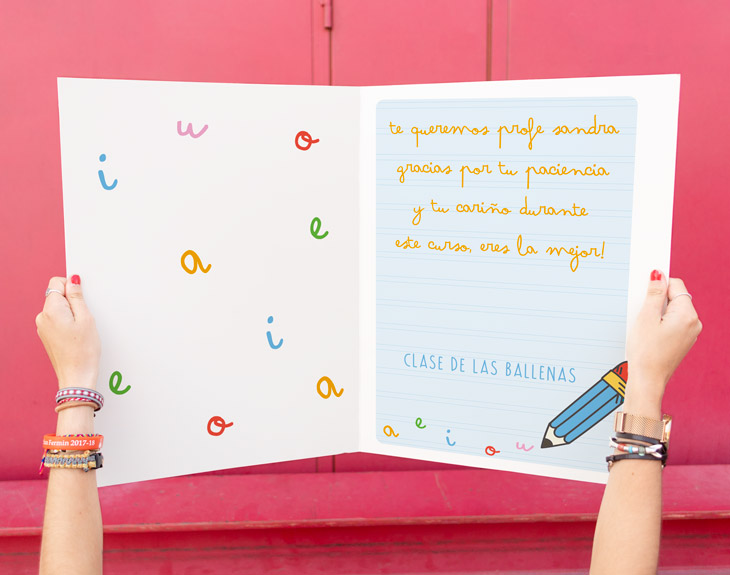 u
o
i
e
a
i
e
a
o
te queremos profe sandra
gracias por tu paciencia
y tu cariño durante
este curso, eres la mejor!
CLASE DE LAS BALLENAS
a e i o u
Fermin 2017-18